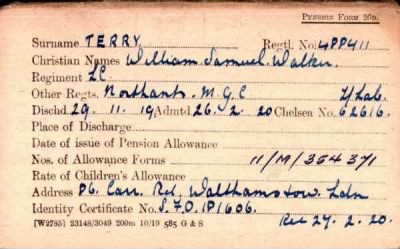 PENSION FORM 26D.
Surname TERRY Regtl. No. 4PP411
Christian Names William Samuel Walker
Regiment L.C.
Other Regts. Northants. M.G.C. Lab.
Dischd. 29. 11. 19, Admtd. 26. 2. 20 Chelsea No. 62616.
Place of Discharge
Date of issue of Pension Allowance
Nos. of Allowance Forms 11/M/364371
Rate of Children's Allowance
Address 86. Carr Rd. Walthamstow. Ldn
Identity Certificate No. Rec 27. 2. 20.
[W2785] 23148/3049 200m 10/19 585 G & S